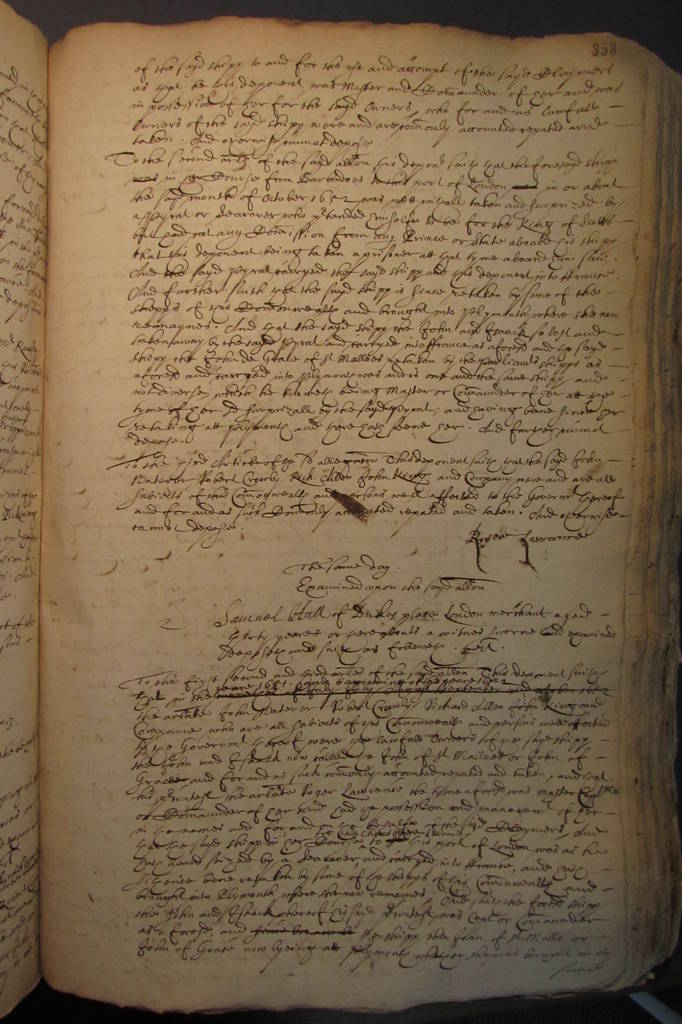 338
of the sayd shipp to and for the use and accompt of the sayd Claymers
as that he this deponent was Master and Commander of her and was
in possession of her for the sayd Owners, who for and as lawfull
Owners of the sayd shipp were and are commonly accounted reputed and
taken. And otherwise cannot depose.
To the second article of the sayd allegation this deponent saith that the foresayd shipp
in her Course from Barbadoes to this port of London in or about
the sayd month of October 1652 was mett withall taken and surprized by
a pyrat or Searover who pretended himselfe to be for the King of Scotts
but had not any Commission from any Prince or State aboard his shipp
that this deponent being taken a prisoner at that tyme aboard him saw.
And the sayd Pyrat carryed the sayd shipp and this deponent into ffrance.
And further saith that the sayd shipp is since retaken by some of the
shipps of this Commonwealth and brought into Plymouth, where she now
remaynes. And that the sayd shipp the John and Isaack so lost and
taken away by the sayd Pyrat and carryed into ffrance as aforesayd and the sayd
shipp the John de Grace of St Malloes retaken by the Parliaments shipps as
aforesayd and carryed into Plymouth was and is one and the same shipp and
not diverse, which he knowes being Master or Commander of her at the
tyme of her surprizall by the sayd Pyrat, and having bene since her
retaking att Plymouth and there hath seene her. And further cannot
depose.
To the third Article of the sayd allegation this deponent saith that the sayd John
Waterer Robert Crowly Rich Allen John King and Company were and are all
subiects of this Commonwealth and persons well affected to the Government thereof
and for and as such Commonly accounted reputed and taken. And otherwise
cannot depose.
Roger Lawrance
The same day.
Examined upon the sayd allegation.
2
Samuel Hall of Dukes place London merchant aged
thirty yeares or thereabouts a witnes sworne and examined
deposeth and saith as followeth. vizt.
To the first second and third articles of the sayd allegation This deponent saith
that in the
the arlate John Waterer Robert Crowly Richard Allen John King and
Companie who are all subiects of this Commonwealth and persons well affected
to the Government thereof were the lawfull Owners of the sayd shipp
the John and Isaack now called the John of St Malloes or John of
Grace and for and as such commonly accounted reputed and taken, and that
his producent the arlate Roger Lawrence the tyme aforesayd was master
or Commander of her and had the possession and managment of her
in the names and for and on the behalfe of the sayd Claymers. And
that the sayd shipp in her Course to this port of London was as he
hath heard seized by a Searover, and carryed into ffrance, and hath
since bene retaken by some of the shipps of this Commonwealth and
brought into Plymouth where she now remaynes. And saith the foresayd shipp
the John and Isaack whereof his sayd producent was Master or Commander
as aforesayd, and the shipp the John of St Mallo or
John of Grace now lyeing att Plymouth whither she was brought in by
some